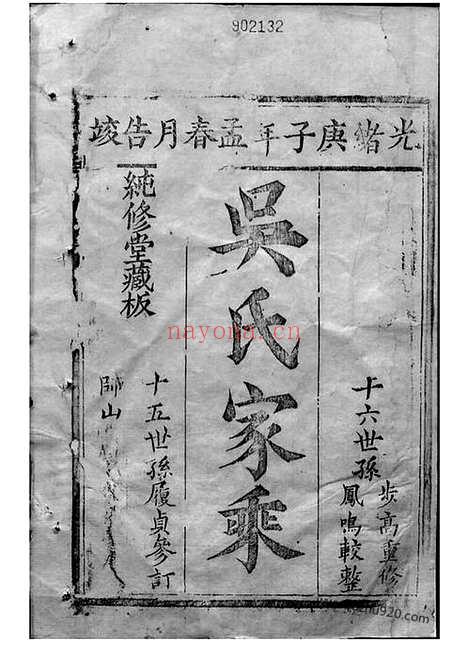 902132
光緒庚子年孟春月告竣
十六世孫
步高重修
鳳鳴較整
吳氏家乘
十五世孫履貞參訂
師山
純修堂藏板
nayona.cn